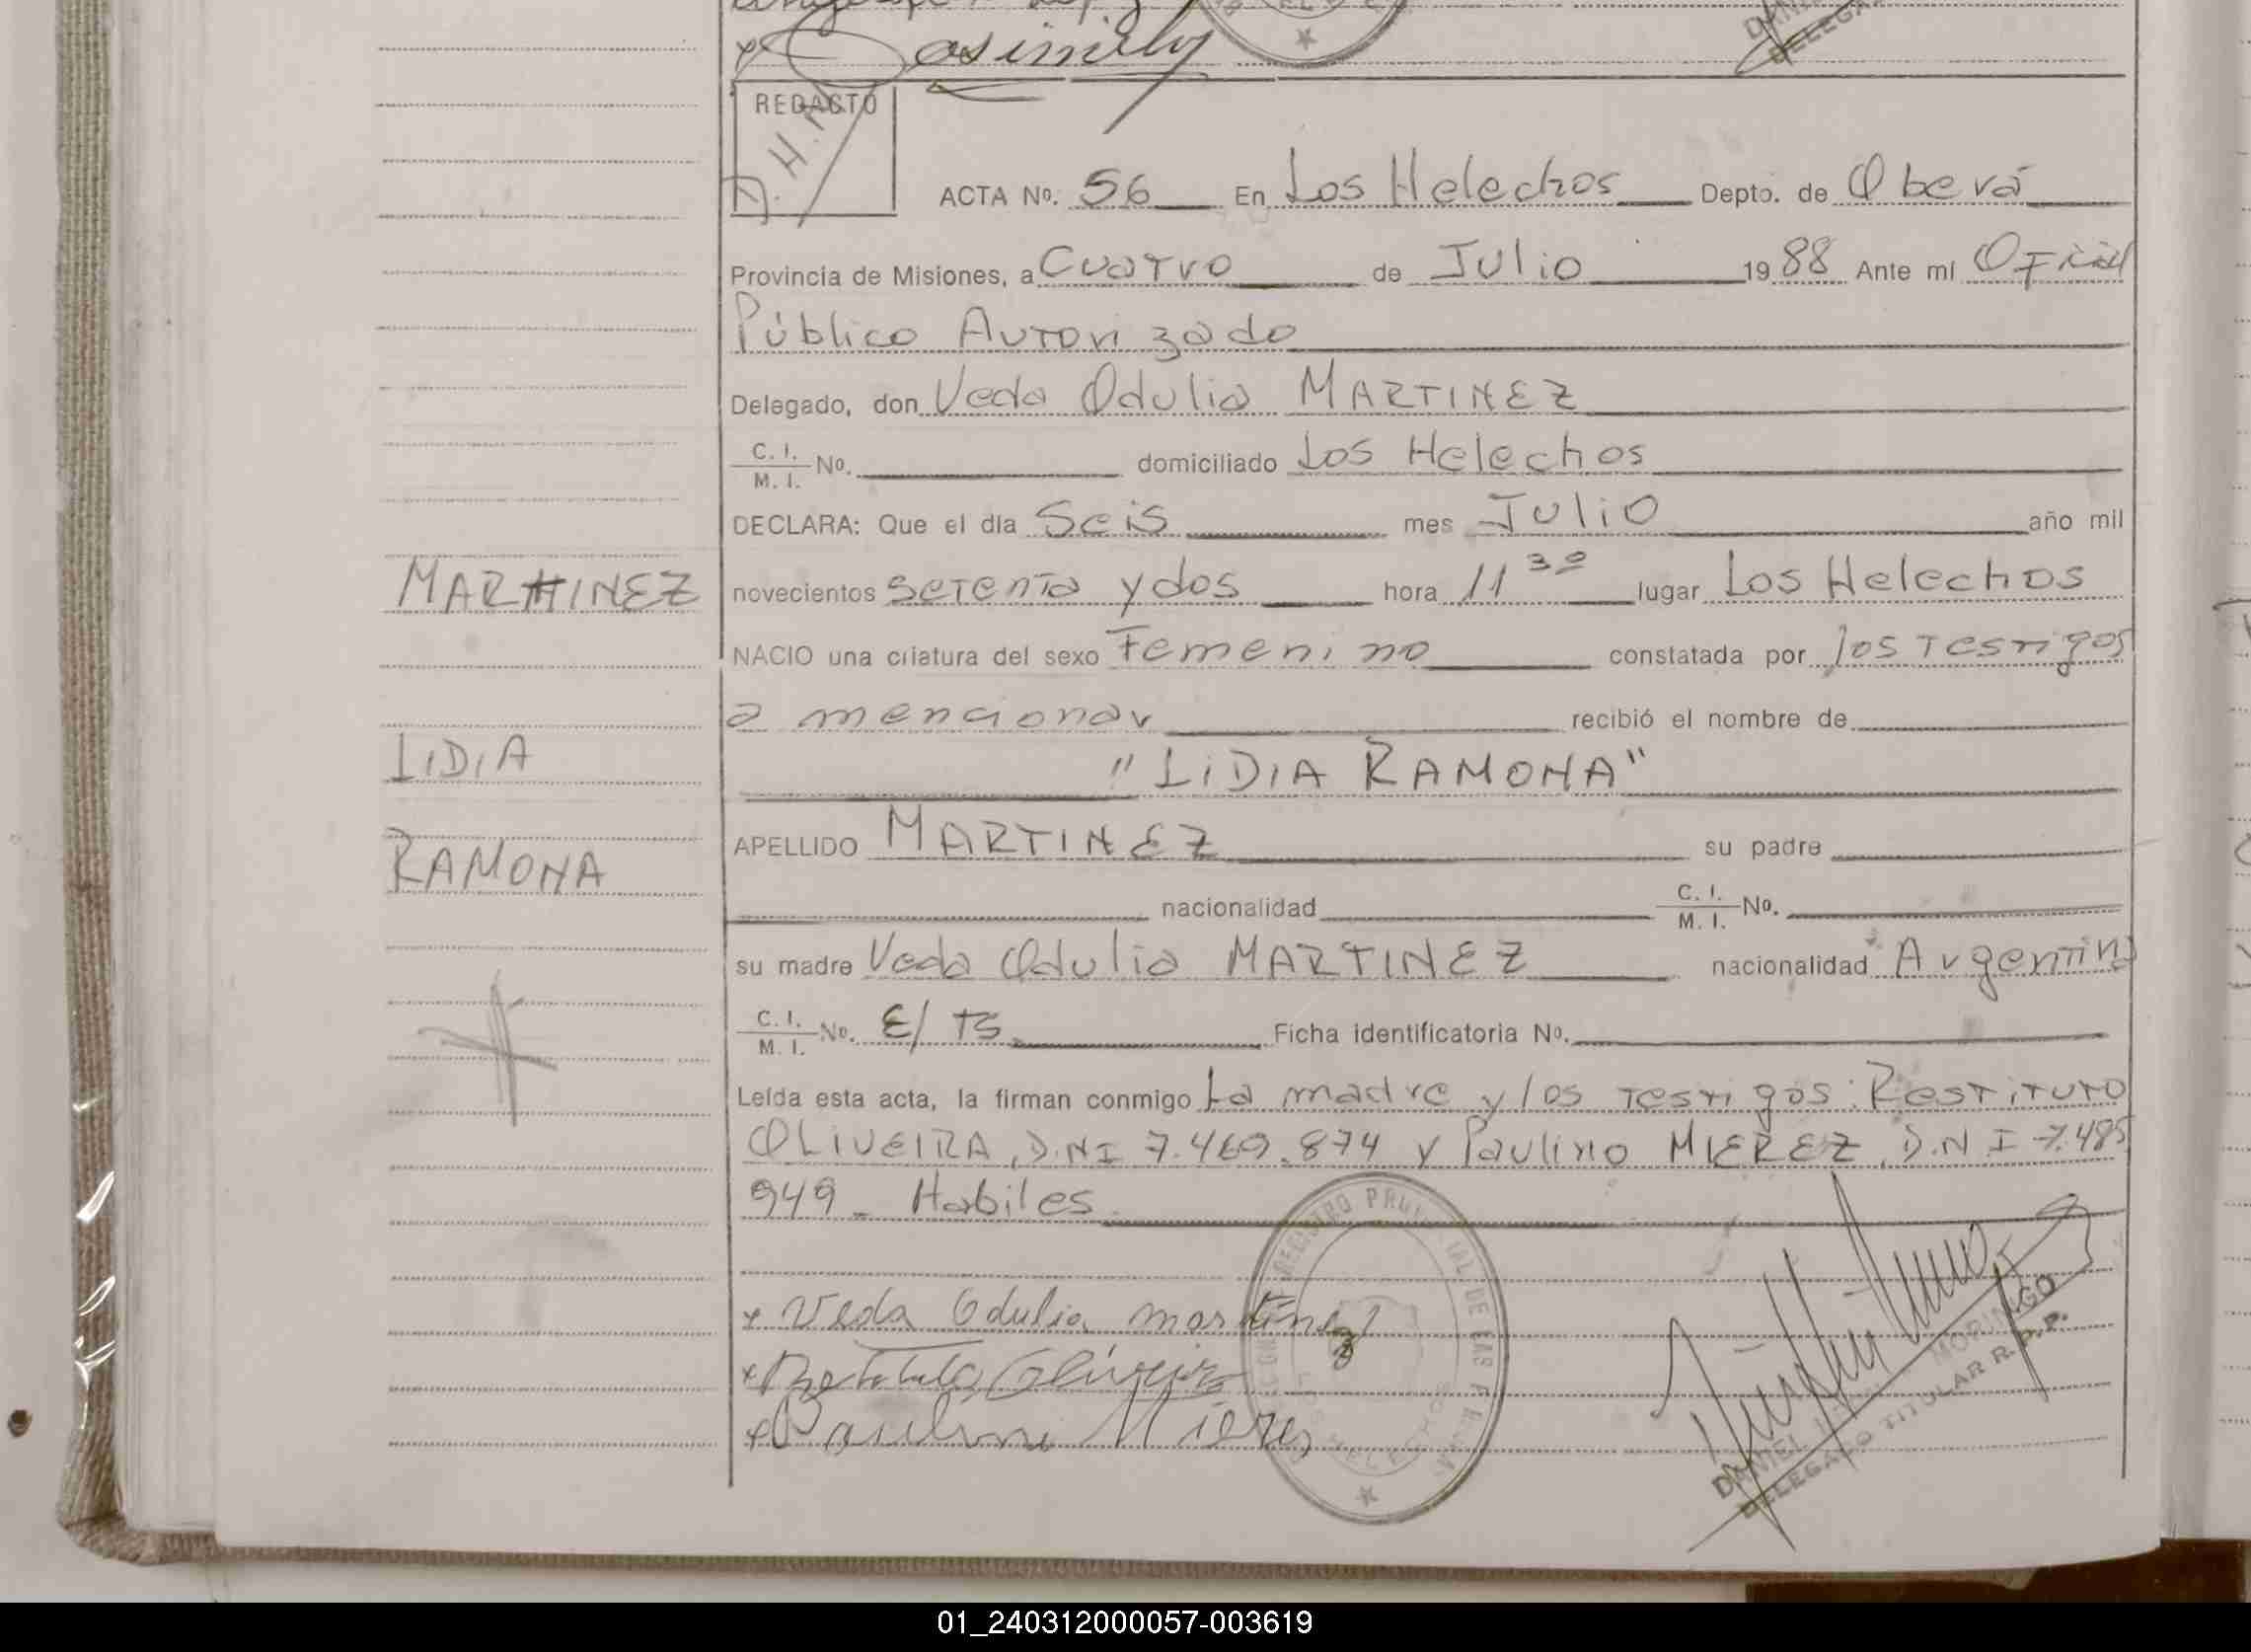 Casimiro
REDACTO
ACTA Nº. 56 En Los Helechos Depto. de Oberá
Provincia de Misiones, a Cuatro de Julio 1988 Ante mí Oficial
Público Autorizado
Delegado, don Veda Odulia MARTINEZ
C. I. / M. I. Nº. domiciliado Los Helechos
DECLARA: Que el día Seis mes Julio año mil
MARTINEZ novecientos setenta y dos hora 11 30 lugar Los Helechos
NACIO una criatura del sexo Femenino constatada por los testigos
a mencionar recibió el nombre de
LIDIA "LIDIA RAMONA"
RAMONA APELLIDO MARTINEZ su padre
nacionalidad C. I. / M. I. Nº.
su madre Veda Odulia MARTINEZ nacionalidad Argentina
C. I. / M. I. Nº. E/TS Ficha identificatoria Nº.
Leída esta acta, la firman conmigo La madre y los testigos: Restituto
OLIVEIRA, D.N.I 7.469.874 y Paulino MIEREZ, D.N.I 7.485
949_ Habiles
x Veda Odulia martinez
x Restituto Oliveira
x Paulino Mieres
REGISTRO PROVINCIAL DE LAS
LOS HELECHOS
DANIEL MORINIGO
DELEGADO TITULAR R.P.P.
01_240312000057-003619